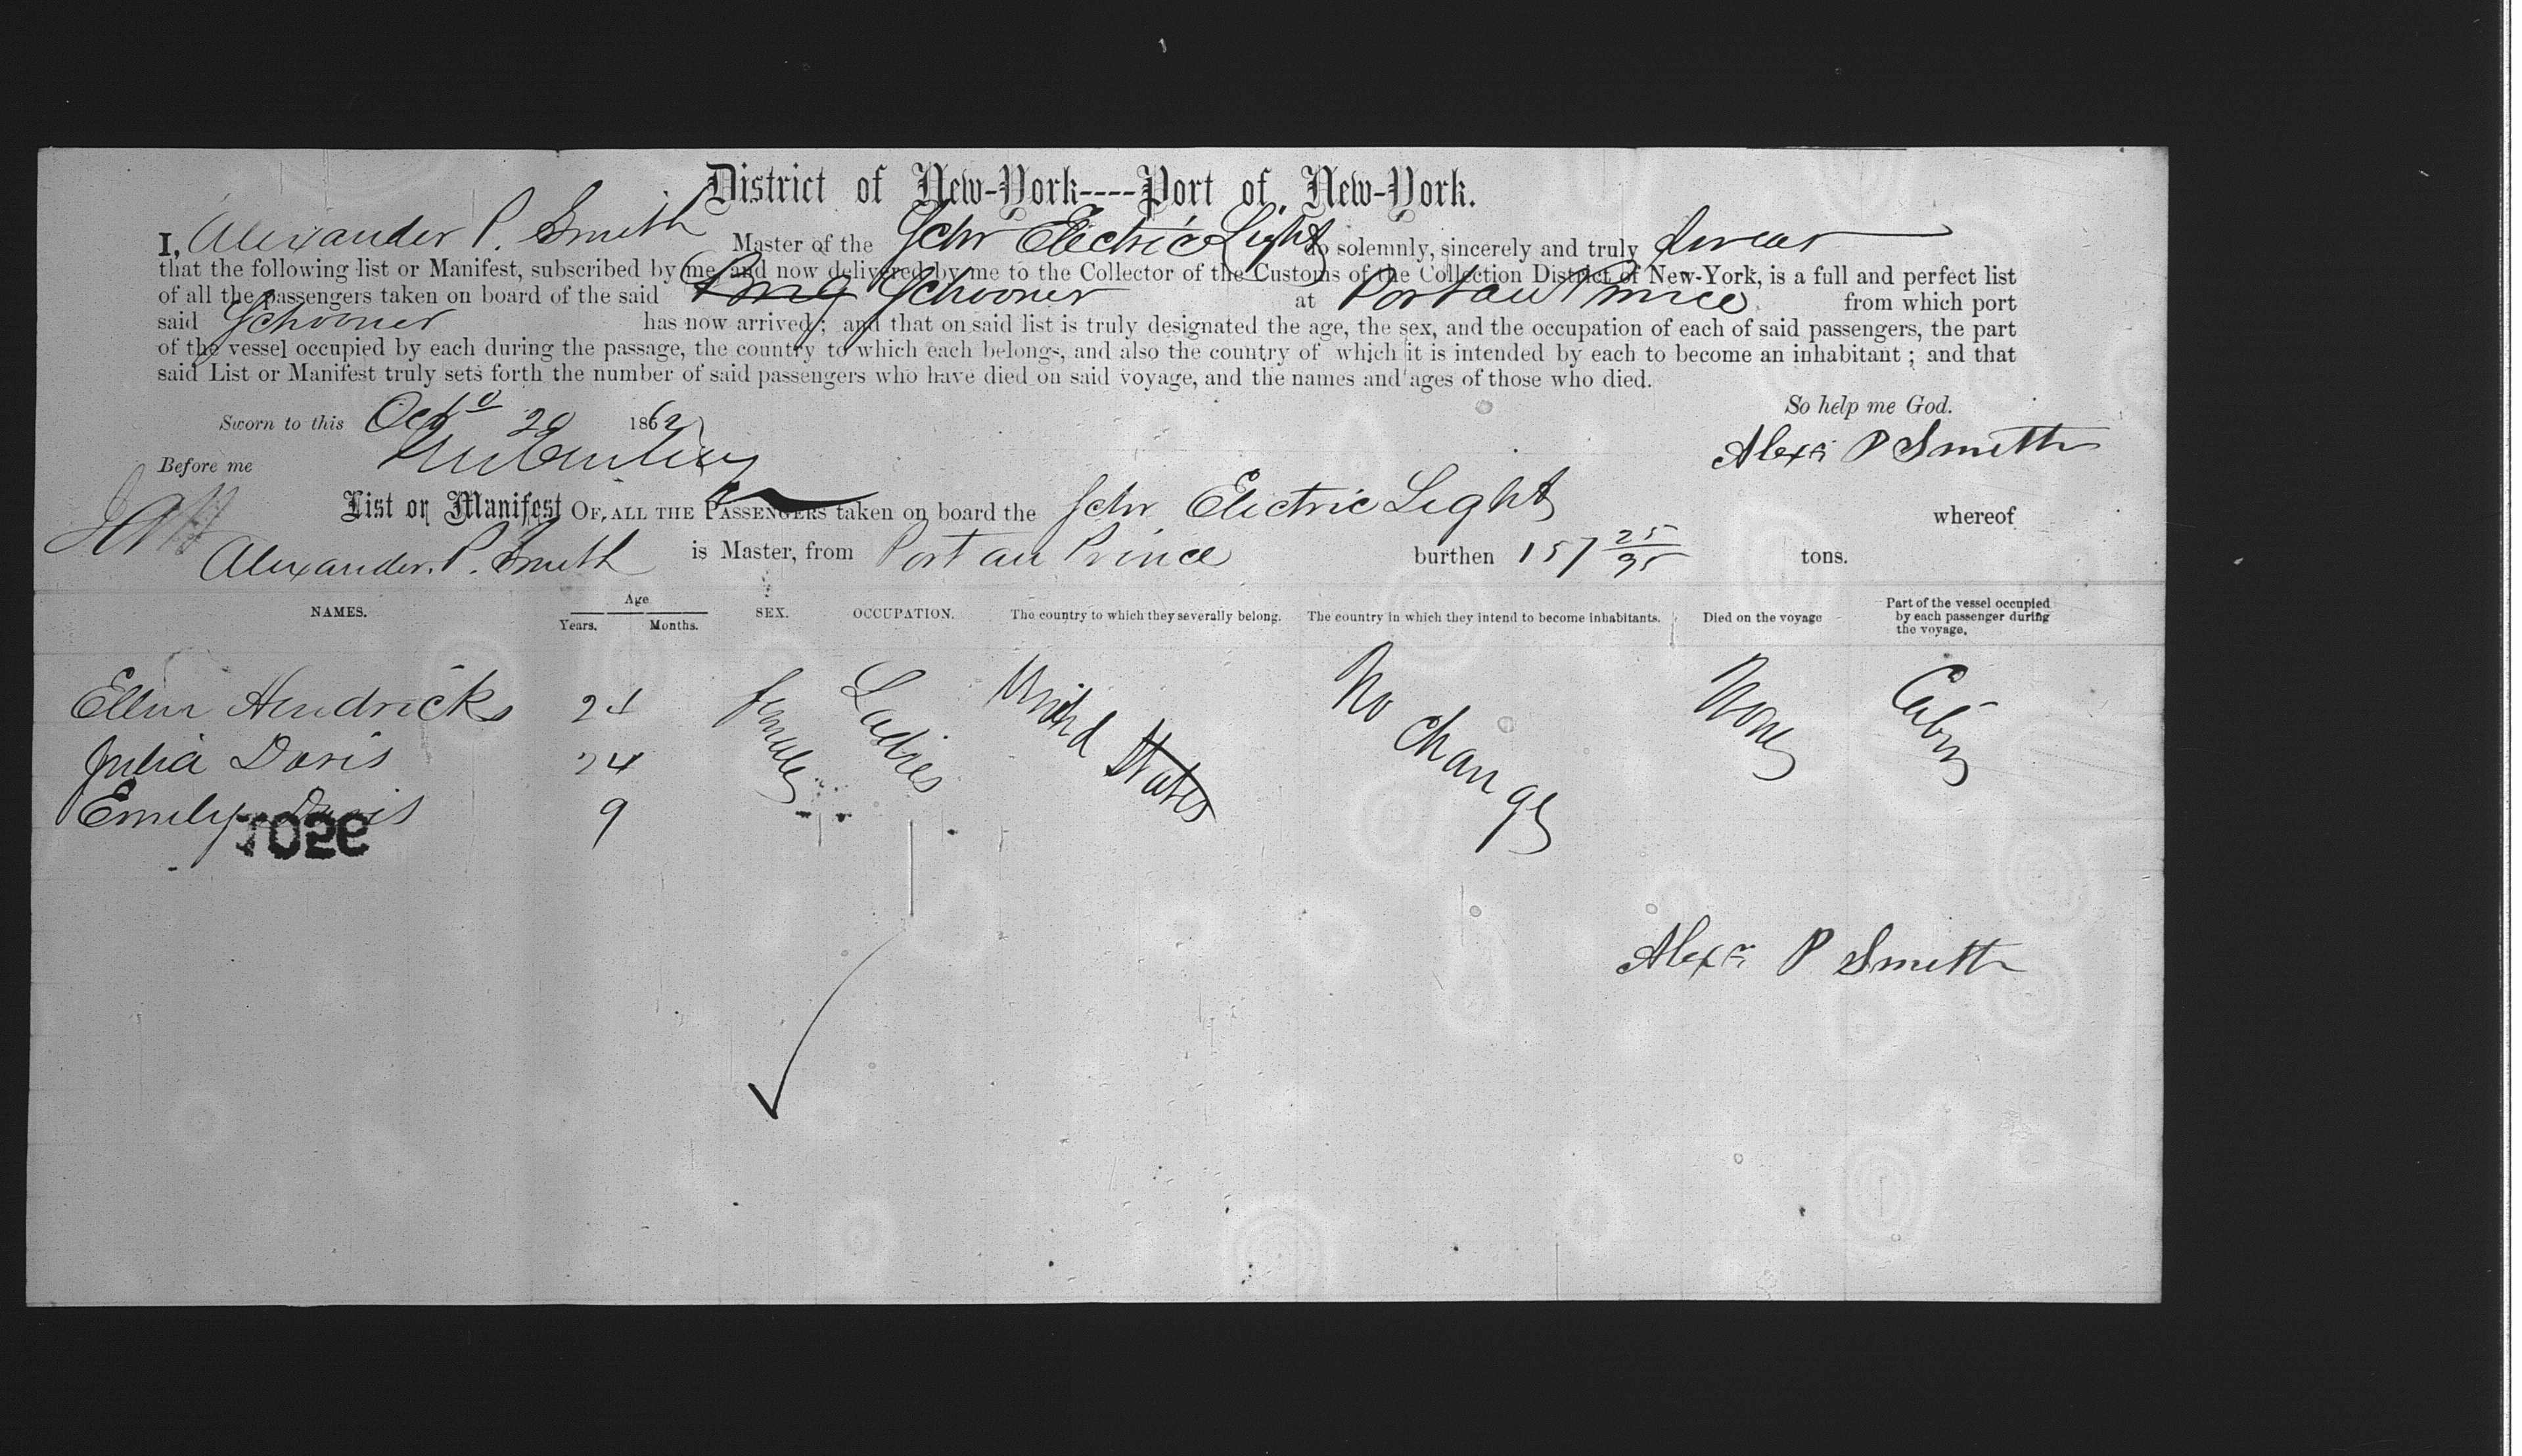 District of New-York----Port of New-York.
I, Alexander P. Smith Master of the Schr Electric Light do solemnly, sincerely and truly swear
that the following list or Manifest, subscribed by me and now delivered by me to the Collector of the Customs of the Collection District of New-York, is a full and perfect list
of all the passengers taken on board of the said Brig Schooner at Port au Prince from which port
said Schooner has now arrived; and that on said list is truly designated the age, the sex, and the occupation of each of said passengers, the part
of the vessel occupied by each during the passage, the country to which each belongs, and also the country of which it is intended by each to become an inhabitant; and that
said List or Manifest truly sets forth the number of said passengers who have died on said voyage, and the names and ages of those who died.
So help me God.
Sworn to this Octo 20 1862
Alexr P Smith
Before me
List or Manifest OF ALL THE PASSENGERS taken on board the Schr Electric Light whereof
Alexander P. Smith is Master, from Port au Prince burthen 157 25/95 tons.
NAMES. Age Years. Months. SEX. OCCUPATION. The country to which they severally belong. The country in which they intend to become inhabitants. Died on the voyage Part of the vessel occupied by each passenger during the voyage.
Ellen Hendricks 24 female Ladies United States No change None Cabin
Julia Davis 24
Emily Davis 9
Alexr P Smith